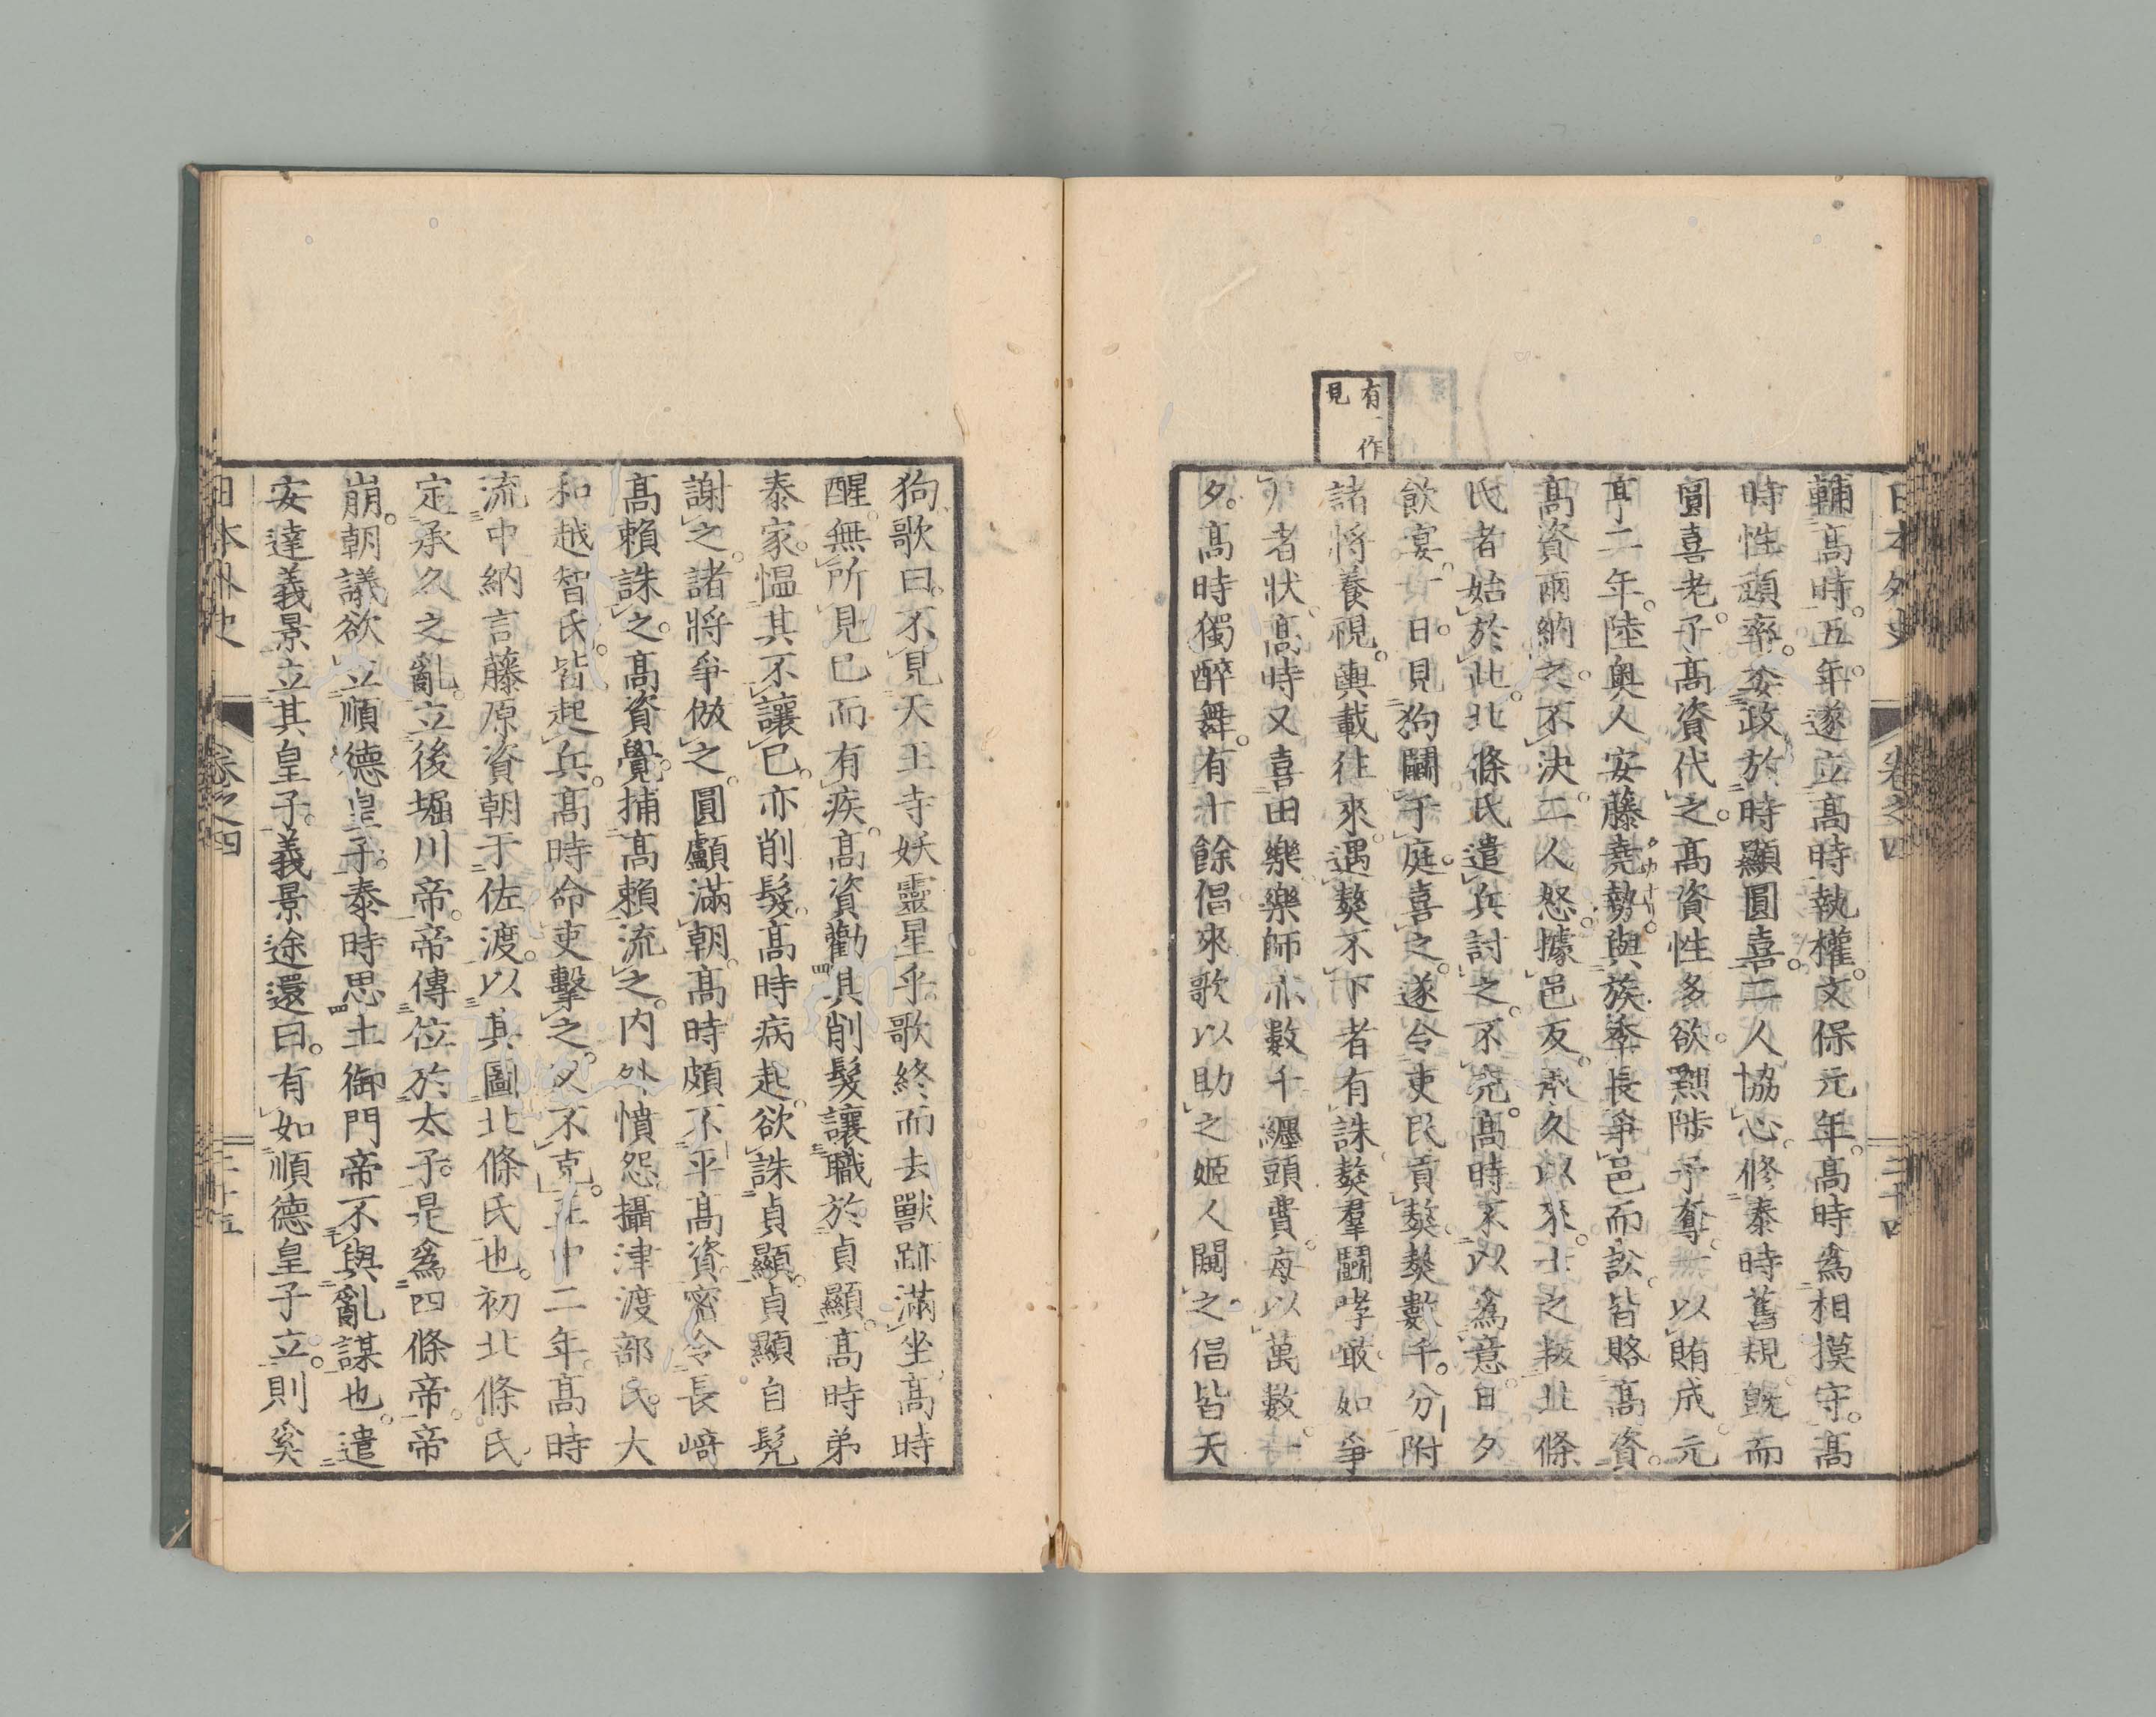 日本外史 卷之四 二十四
有一作
見
輔高時。五年。遂立高時執權。文保元年。高時爲相摸守。高
時性頑率。委政於時顯圓喜。二人協心。修泰時舊規。既而
圓喜老。子高資代之。高資性多欲。黜陟予奪。無以賄成。元
亨二年。陸奥人安藤堯勢。與族季長爭邑而訟。皆賂高資。
高資兩納之。不決。二人怒。據邑反。承久以來。士之叛北條
氏者始於此。北條氏遣兵討之。不克。高時不以爲意。日夕
飲宴。一日。見狗鬪于庭。喜之。遂令吏民貢獒。獒數千。分附
諸將養視。輿載往來。遇獒不下者有誅。獒羣鬪哮噉。如爭
者状。高時又喜田樂。樂師亦數千。纏頭費。毎以萬數。一
夕。高時獨醉舞。有十餘倡來歌以助之。姬人闚之。倡皆天
狗。歌曰。不見天王寺妖靈星乎。歌終而去。獸跡滿坐。高時
醒。無所見。已而有疾。高資勸其削髮讓職於貞顯。高時弟
泰家。愠其不讓已。亦削髮。高時病起。欲誅貞顯。貞顯自髡
謝之。諸將爭倣之。圓顱滿朝。高時頗不平高資。密令長﨑
高賴誅之。高資覺。捕高賴流之。内外憤怨。攝津渡部氏。大
和越智氏。皆起兵。高時命吏擊之。又不克。正中二年。高時
流中納言藤原資朝于佐渡。以其圖北條氏也。初北條氏
定承久之亂。立後堀川帝。帝傳位於太子。是爲四條帝。帝
崩。朝議欲立順德皇子。泰時思土御門帝不與亂謀也。遣
安達義景立其皇子。義景途還曰。有如順德皇子立。則奚
日本外史 卷之四 二十五